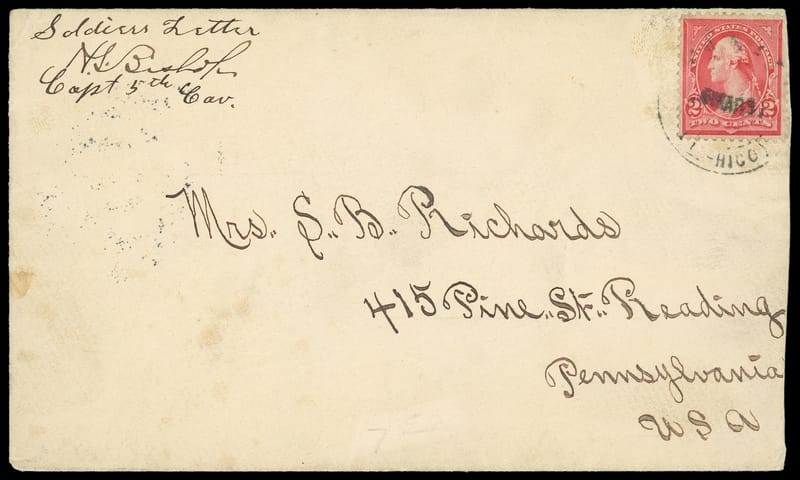 Soldiers Letter
H.S. Bishop
Capt 5th Cav.
UNITED STATES POSTAGE
2 MAR 31 2
TWO CENTS
-HICO
Mrs. S. B. Richards
415 Pine. St. Reading
Pennsylvania
U S A